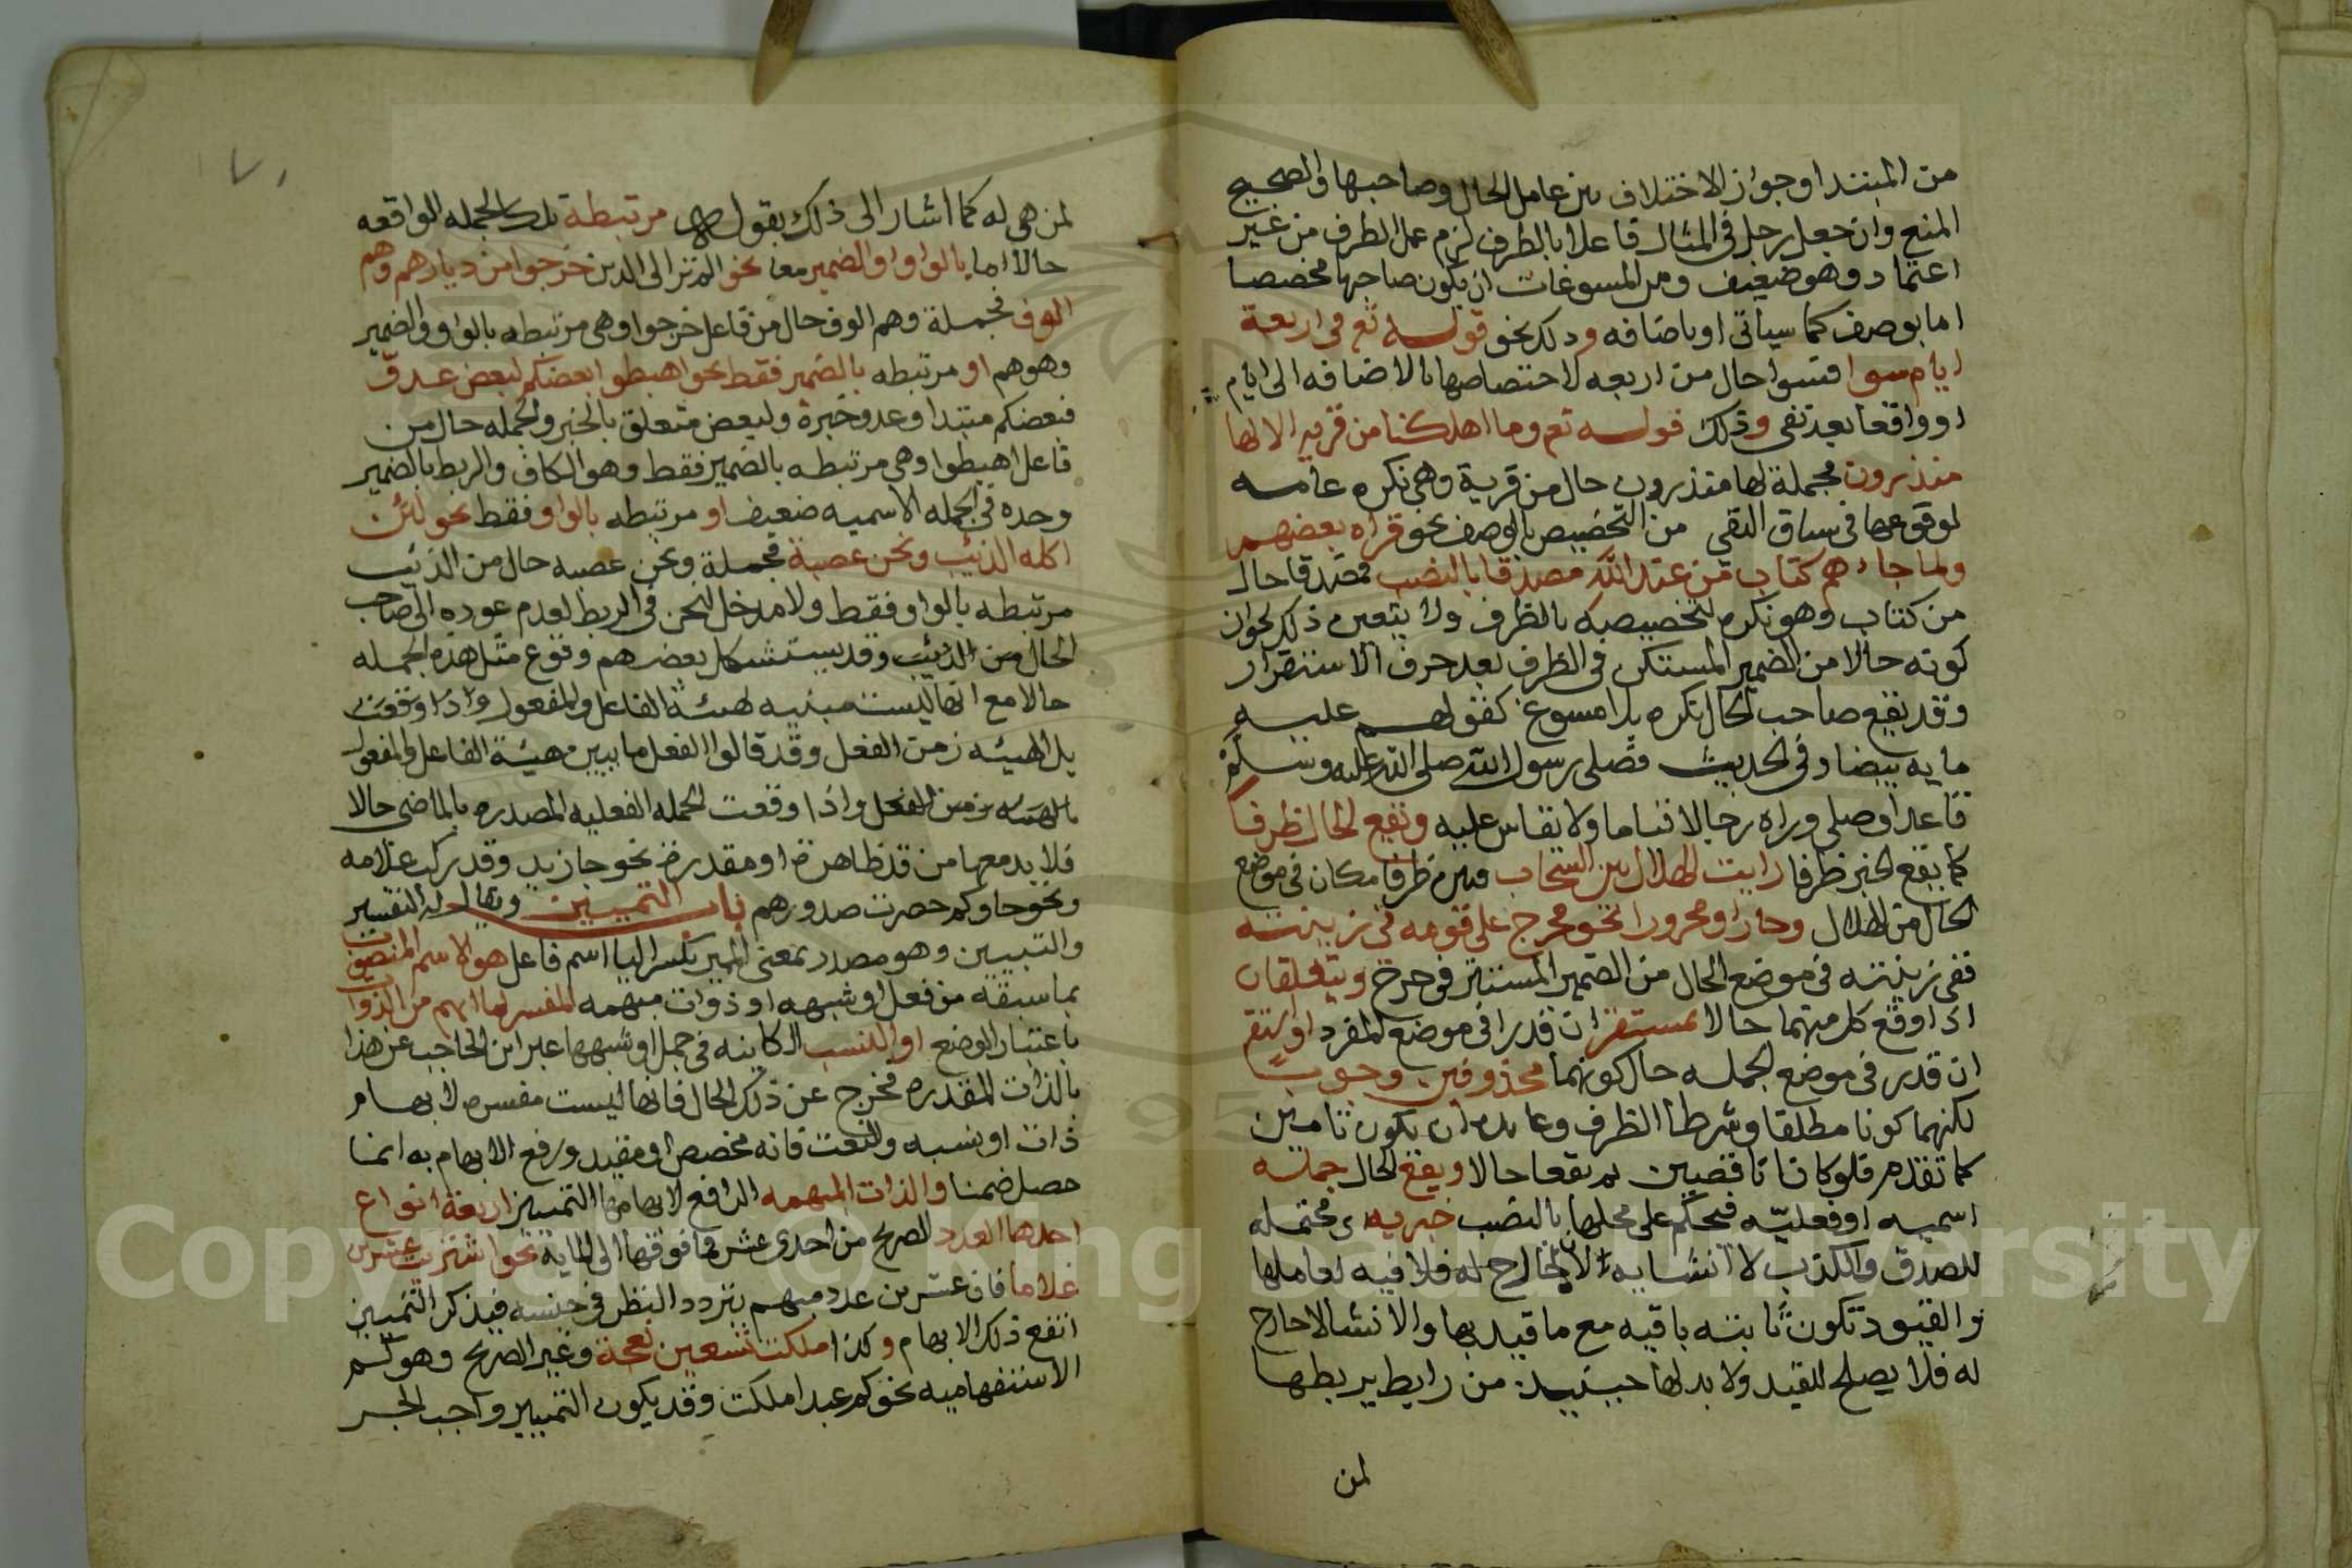 من المبتدا وجواز الاختلاف بين عامل الحال وصاحبها والصحيح
المنع وان جعل رجل في المثال فاعلا بالظرف لزم عمل الظرف من غير
اعتماد وهو ضعيف ومن المسوغات ان يكون صاحبها مخصصا
اما بوصف كما سياتي او باضافه وذلك نحو قوله تع في اربعة
ايام سوا فسوا حال من اربعه لاختصاصها بالاضافه الى ايام
او واقعا بعد نفي وذلك قوله تع وما اهلكنا من قريه الا لها
منذرون فجملة لها منذرون حال من قرية وهي نكره عامه
لوقوعها في سياق النفي من التخصيص بالوصف نحو قراه بعضهم
ولما جاءهم كتاب من عند الله مصدقا بالنصب فمصدقا حال
من كتاب وهو نكره لتخصيصه بالظرف ولا يتعين ذلك لجواز
كونه حالا من الضمير المستكن في الظرف بعد حذف الاستقرار
وقد يقع صاحب الحال نكره بلا مسوغ كقولهم عليه
مايه بيضا وفي الحديث فصلى رسول الله صلى الله عليه وسلم
قاعدا وصلى وراه رجالا قياما ولا يقاس عليه ويقع الحال ظرفا
كما يقع الخبر ظرفا رايت الهلال بين السحاب فبين ظرف مكان في موضع
الحال من الهلال وجارا ومجرورا نحو فخرج على قومه في زينته
ففي زينته في موضع الحال من الضمير المستتر في خرج ويتعلقان
اذا وقع كل منهما حالا بمستقر ان قدرا في موضع المفرد او استقر
ان قدر في موضع الجمله حال كونهما محذوفين وجوبا
لكنهما كونا مطلقا وشرط الظرف وعديله ان يكون تامين
كما تقدم فلو كانا ناقصين لم يقعا حالا ويقع الحال جملة
اسميه او فعليّه فيحكم على محلها بالنصب خبريه اي محتمله
للصدق والكذب لا انشايه لان الخارج له فلا فيه لعاملها
والقيود تكون ثابته باقيه مع ما قيد بها والانشا لا خارج
له فلا يصلح للقيد ولا بد لها حينئيذ من رابط يربطها
لمن
لمن هي له كما اشار الى ذلك بقوله مرتبطة تلك الجمله الواقعه
حالا اما بالواو والضمير معا نحو الم تر الى الذين خرجوا من ديارهم وهم
الوف فجملة وهم الوف حال من فاعل خرجوا وهي مرتبطه بالواو والضمير
وهو هم او مرتبطه بالضمير فقط نحو اهبطوا بعضكم لبعض عدوّ
فبعضكم مبتدا وعدو خبره ولبعض متعلق بالخبر والجمله حال من
فاعل اهبطوا وهي مرتبطه بالضمير فقط وهو الكاف والربط بالضمير
وحده في الجمله الاسميه ضعيف او مرتبطه بالواو فقط نحو لئن
اكله الذئب ونحن عصبة فجملة ونحن عصبه حال من الذئب
مرتبطه بالواو فقط ولا مدخل لنحن في الربط لعدم عوده الى صاحب
الحال من الذئب وقد يستشكل بعضهم وقوع مثل هذه الجمله
حالا مع انها ليست مبينه لهيئة الفاعل والمفعول واذا وقعت
بل لهيئه زمن الفعل وقد قالوا الفعل ما يبين هيئة الفاعل والمفعول
بالهيئه زمن الفعل واذا وقعت الجمله الفعليه المصدره بالماضي حالا
فلا بد معها من قد ظاهرة او مقدرة نحو جا زيد وقد ركب غلامه
ونحو جاوكم حصرت صدورهم باب التمييز ويقال له التفسير
والتبيين وهو مصدر بمعنى المميز بكسر اليا اسم فاعل هو الاسم المنصوب
بما سبقه من فعل او شبهه او ذوات مبهمه المفسر لما انبهم من الذوات
باعتبار الوضع او النسب الكاينه في جمل او شبهها عبر ابن الحاجب عن هذا
بالذات المقدره فخرج عن ذلك الحال فانها ليست مفسره لابهام
ذات او نسبه والنعت فانه مخصص او مقيد ورفع الابهام به انما
حصل ضمنا والذات المبهمه الرافع لابهامها التمييز اربعة انواع
احدها العدد الصريح من احدى عشر فما فوقها الى المايه نحو اشتريت عشرين
غلاما فان عشرين عدد مبهم يتردد النظر في جنسه فبذكر التمييز
انتفع ذلك الابهام وكذا ملكت تسعين نعجة وغير الصريح وهو كم
الاستفهاميه نحو كم عبدا ملكت وقد يكون التمييز واجب الجر